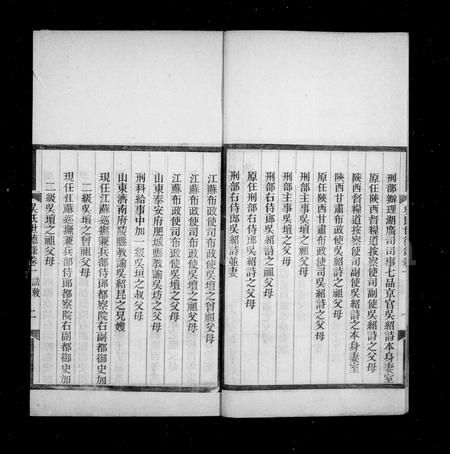 刑部辦理湖廣司司事七品京官吳紹詩本身妻室
原任陝西督糧道按察使司副使吳紹詩之父母
陝西督糧道按察使司副使吳紹詩之本身妻室
陝西甘肅布政使吳紹詩之祖父母
原任陝西甘肅布政使司吳紹詩之父母
刑部主事吳壇之祖父母
刑部主事吳壇之父母
刑部右侍郎吳紹詩之祖父母
原任刑部右侍郎吳紹詩之父母
刑部右侍郎吳紹詩並妻
江蘇布政使司布政使吳壇之曾祖父母
江蘇布政使司布政使吳壇之祖父母
江蘇布政使司布政使吳壇之父母
山東泰安府肥城縣教諭吳坊之父母
刑科給事中加一級吳垣之叔父母
山東濟南府陵縣教諭吳紹昆之兄嫂
現任江蘇巡撫兼兵部侍郎都察院右副都御史加
二級吳壇之曾祖父母
現任江蘇巡撫兼兵部侍郎都察院右副都御史加
二級吳壇之祖父母
吳氏世德錄卷一 誥敕 二